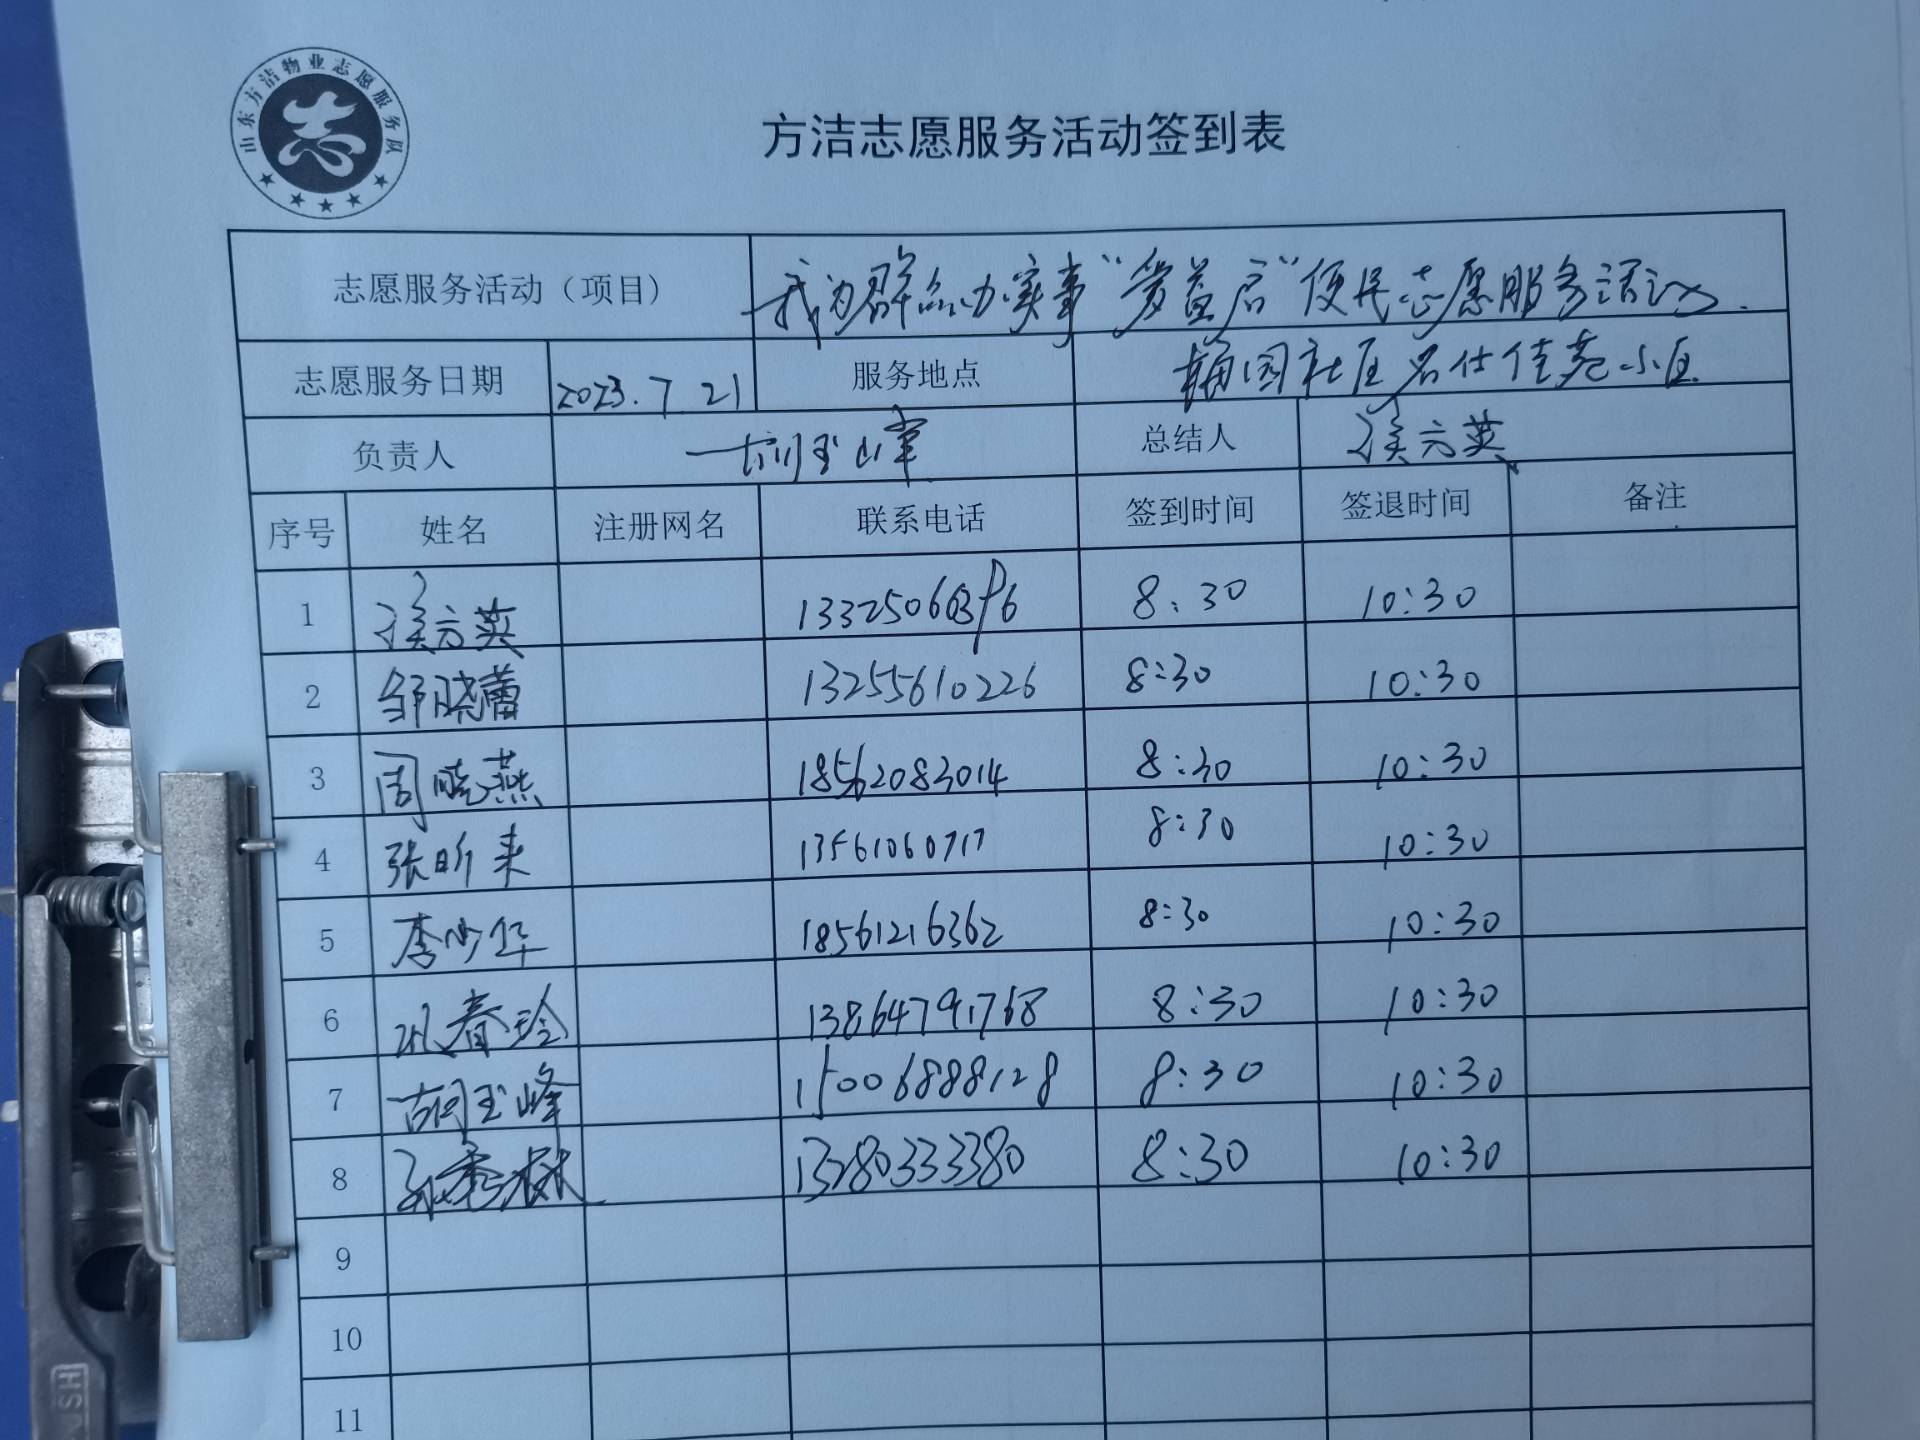 山东方洁物业志愿服务队
方洁志愿服务活动签到表
志愿服务活动（项目） 我为群众办实事“爱益启”便民志愿服务活动.
志愿服务日期 2023.7.21 服务地点 园社区名仕佳苑小区
负责人 胡玉峰 总结人 侯方英
序号 姓名 注册网名 联系电话 签到时间 签退时间 备注
1 侯方英 8:30 10:30
2 邹晓蕾 13255610226 8:30 10:30
3 周晓燕 18562083014 8:30 10:30
4 张昕来 13561060717 8:30 10:30
5 李少华 18561216362 8:30 10:30
6 巩春玲 13864791768 8:30 10:30
7 胡玉峰 15006888128 8:30 10:30
8 孙秀林 13280333380 8:30 10:30
9
10
11